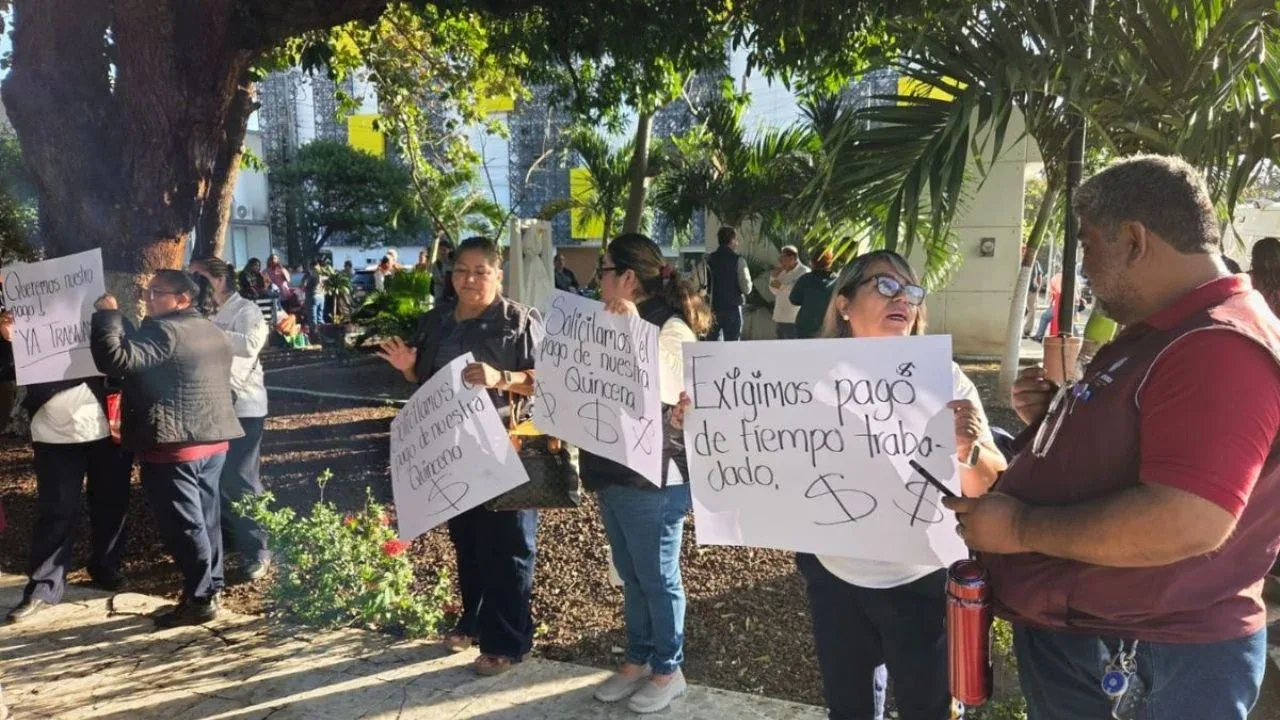 Queremos nuestro
pago!
YA TRABAJ
licitamos
pago de nuestra
Quincena
$
Solicitamos el
pago de nuestra
Quincena
$
Exigimos pago
de tiempo traba-
dado,
$ $